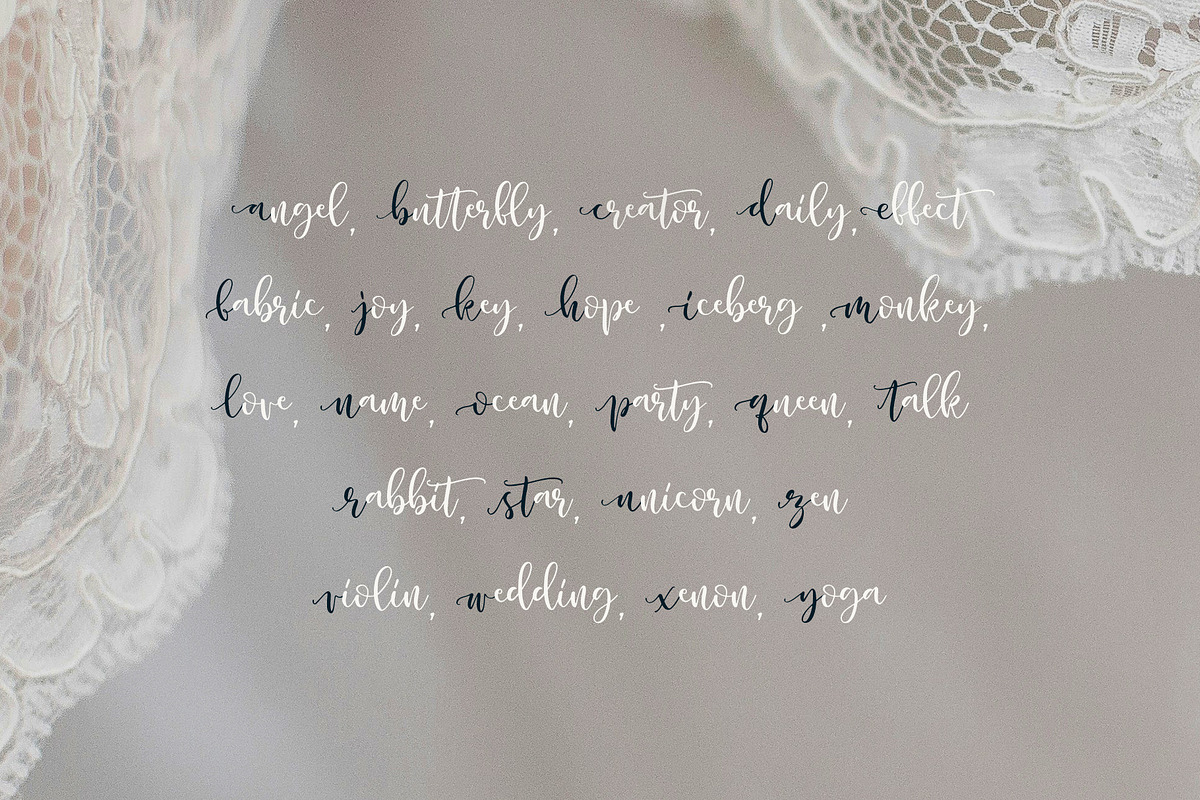 angel, butterfly, creator, daily, effect
fabric, joy, key, hope ,iceberg ,monkey,
love, name, ocean, party, queen, talk
rabbit, star, unicorn, zen
violin, wedding, xenon, yoga